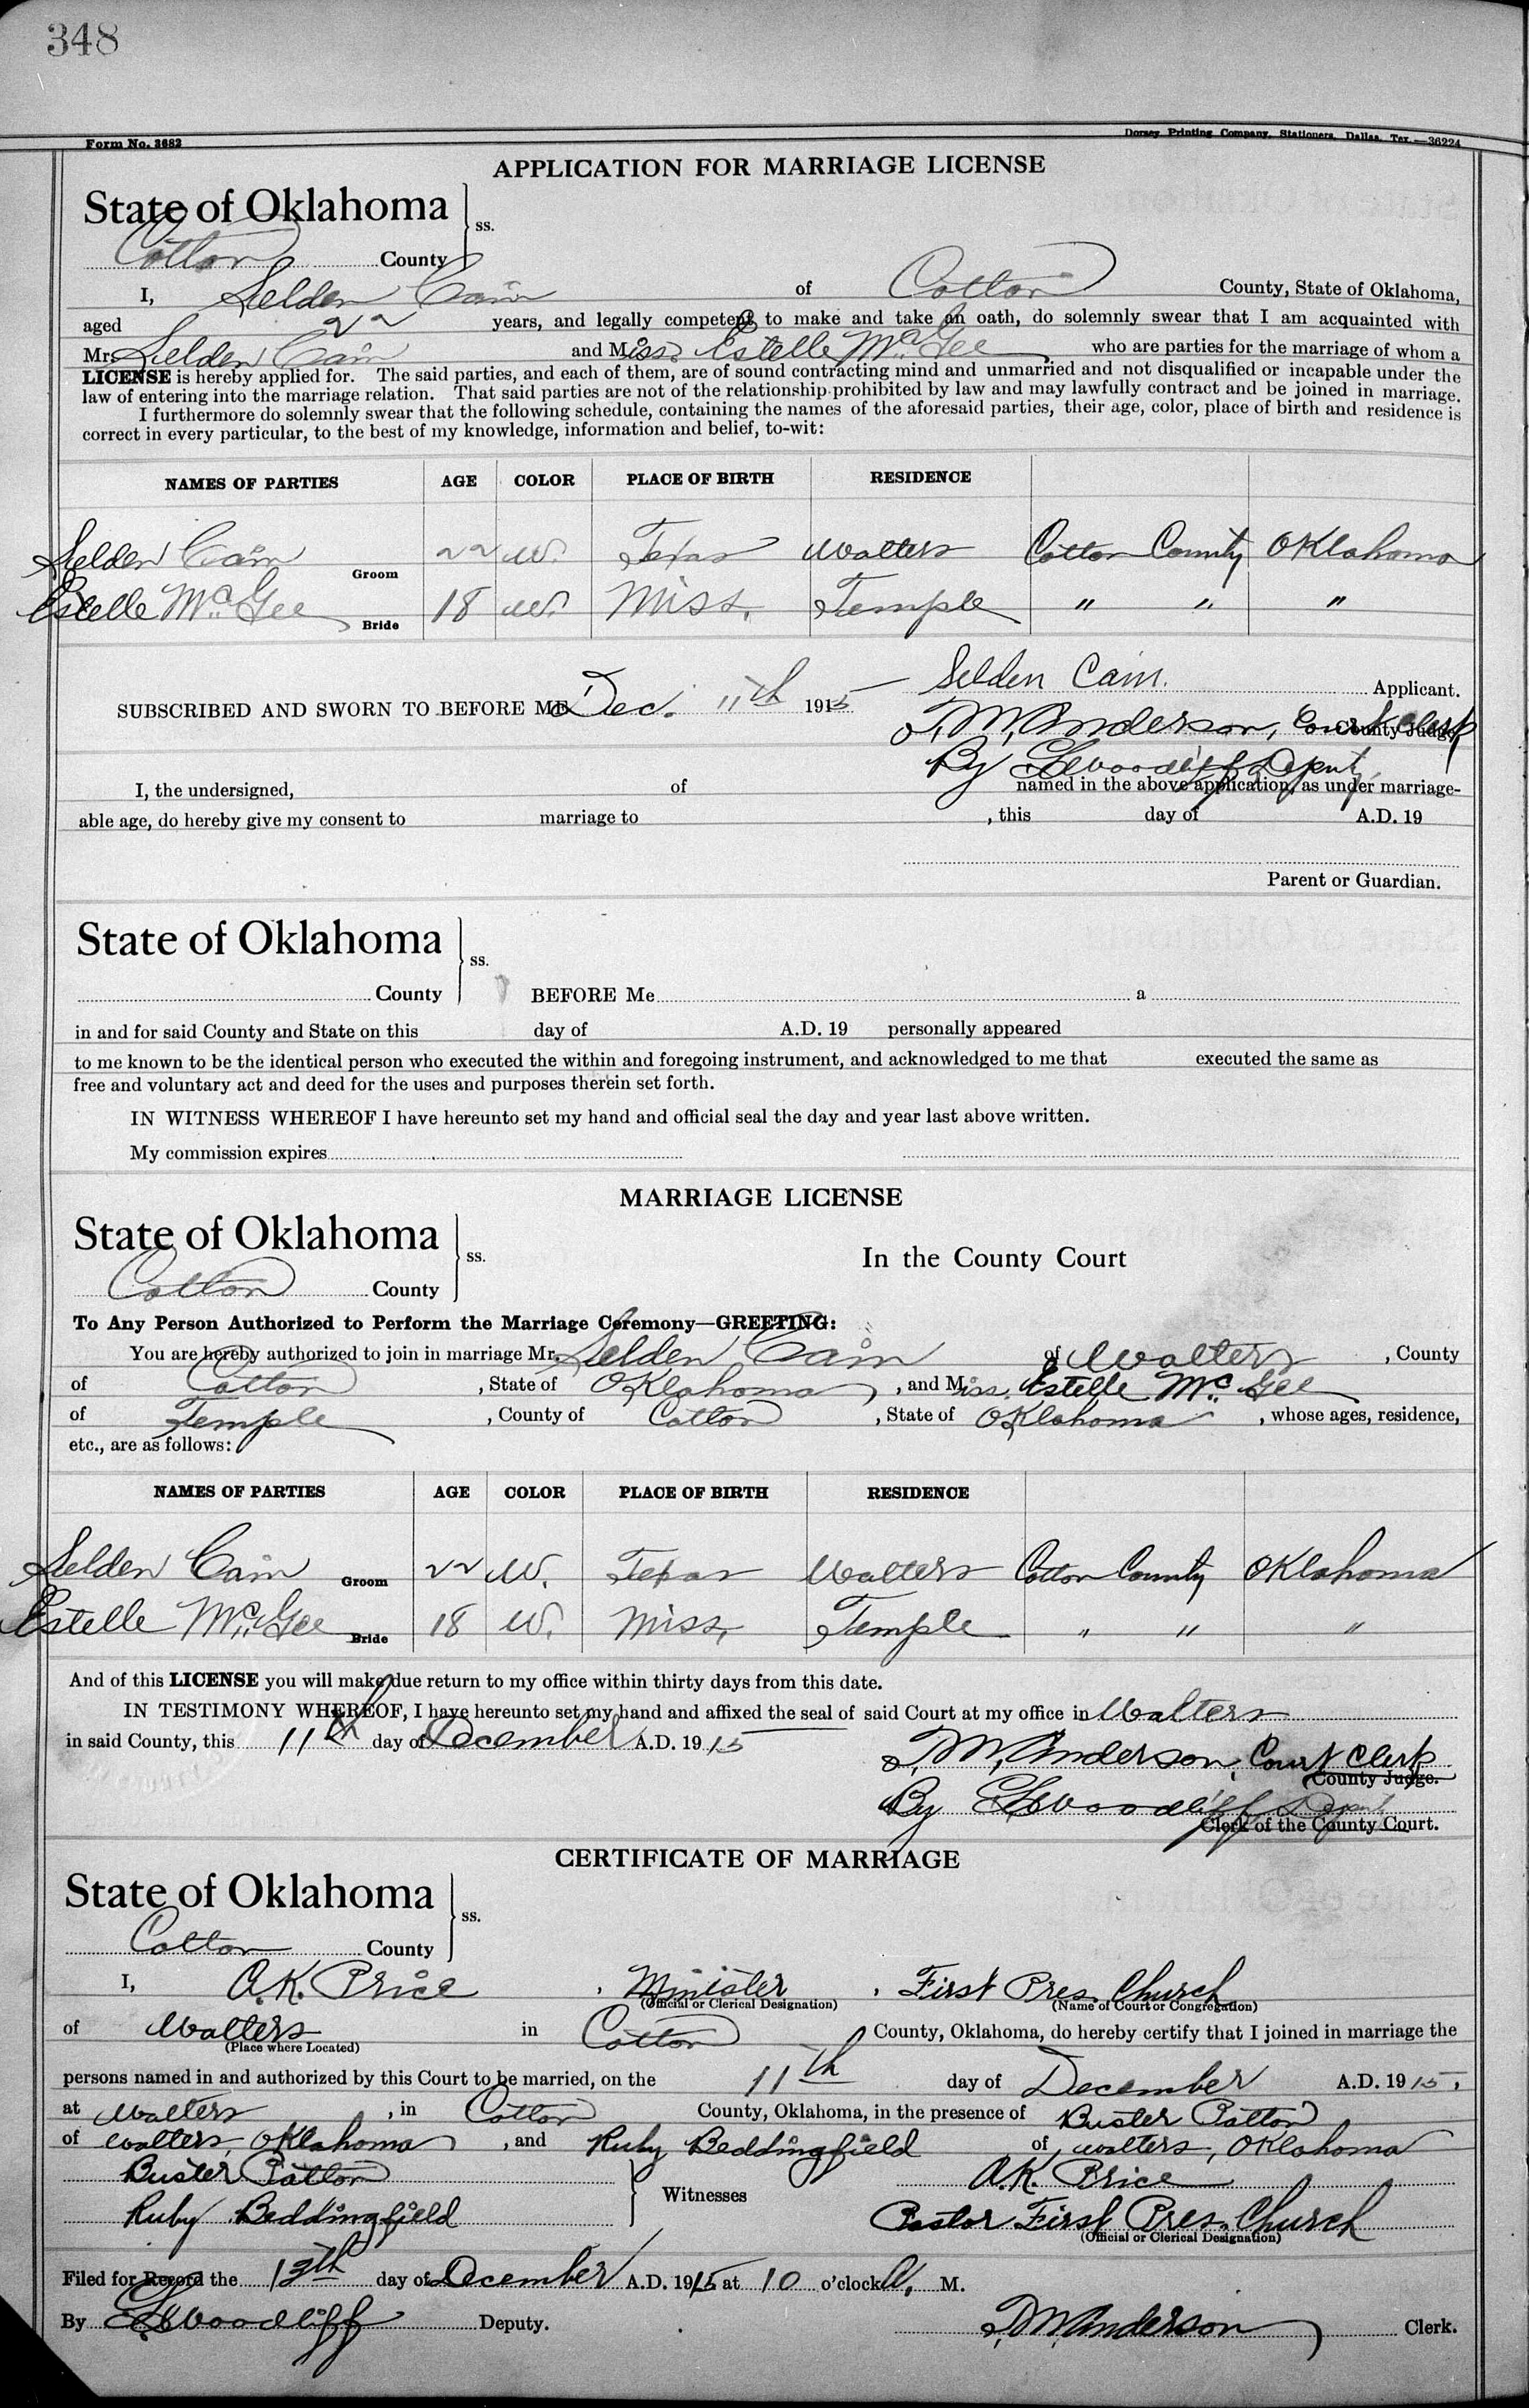 348
Form No. 3682 Dorsey Printing Company, Stationers, Dallas, Tex.—36224
APPLICATION FOR MARRIAGE LICENSE
State of Oklahoma
ss.
Cotton County
I, Selden Cain of Cotton County, State of Oklahoma,
aged 22 years, and legally competent to make and take an oath, do solemnly swear that I am acquainted with
Mr. Selden Cain and Miss. Estelle McGee who are parties for the marriage of whom a
LICENSE is hereby applied for. The said parties, and each of them, are of sound contracting mind and unmarried and not disqualified or incapable under the
law of entering into the marriage relation. That said parties are not of the relationship prohibited by law and may lawfully contract and be joined in marriage.
I furthermore do solemnly swear that the following schedule, containing the names of the aforesaid parties, their age, color, place of birth and residence is
correct in every particular, to the best of my knowledge, information and belief, to-wit:
NAMES OF PARTIES AGE COLOR PLACE OF BIRTH RESIDENCE
Selden Cain Groom 22 W. Texas Walters Cotton County Oklahoma
Estelle McGee Bride 18 W. Miss. Temple " " "
Selden Cain. Applicant.
SUBSCRIBED AND SWORN TO BEFORE ME Dec. 11th 1915
M. Anderson, Court Clerk County Judge.
By Woodliff Deputy
I, the undersigned, of named in the above application, as under marriage-
able age, do hereby give my consent to marriage to , this day of A.D. 19
Parent or Guardian.
State of Oklahoma
ss.
County BEFORE Me a
in and for said County and State on this day of A.D. 19 personally appeared
to me known to be the identical person who executed the within and foregoing instrument, and acknowledged to me that executed the same as
free and voluntary act and deed for the uses and purposes therein set forth.
IN WITNESS WHEREOF I have hereunto set my hand and official seal the day and year last above written.
My commission expires
MARRIAGE LICENSE
State of Oklahoma
ss.
In the County Court
Cotton County
To Any Person Authorized to Perform the Marriage Ceremony—GREETING:
You are hereby authorized to join in marriage Mr. Selden Cain of Walters, County
of Cotton, State of Oklahoma, and Miss. Estelle Mc Gee
of Temple, County of Cotton, State of Oklahoma, whose ages, residence,
etc., are as follows:
NAMES OF PARTIES AGE COLOR PLACE OF BIRTH RESIDENCE
Selden Cain Groom 22 W. Texas Walters Cotton County Oklahoma
Estelle McGee Bride 18 W. Miss. Temple " " "
And of this LICENSE you will make due return to my office within thirty days from this date.
IN TESTIMONY WHEREOF, I have hereunto set my hand and affixed the seal of said Court at my office in Walters
in said County, this 11th day of December A.D. 1915
M. Anderson, Court Clerk
County Judge.
By Woodliff Deputy
Clerk of the County Court.
CERTIFICATE OF MARRIAGE
State of Oklahoma
ss.
Cotton County
I, A.K. Price, Minister, First Pres. Church
(Official or Clerical Designation) (Name of Court or Congregation)
of Walters in Cotton County, Oklahoma, do hereby certify that I joined in marriage the
(Place where Located)
persons named in and authorized by this Court to be married, on the 11th day of December A.D. 1915,
at Walters, in Cotton County, Oklahoma, in the presence of Buster Patton
of Walters, Oklahoma, and Ruby Beddingfield of Walters, Oklahoma
Buster Patton A.K. Price
Witnesses
Ruby Beddingfield Pastor First Pres. Church
(Official or Clerical Designation)
Filed for Record the 13th day of December A.D. 1915 at 10 o'clock A. M.
By Woodliff Deputy. M Anderson Clerk.